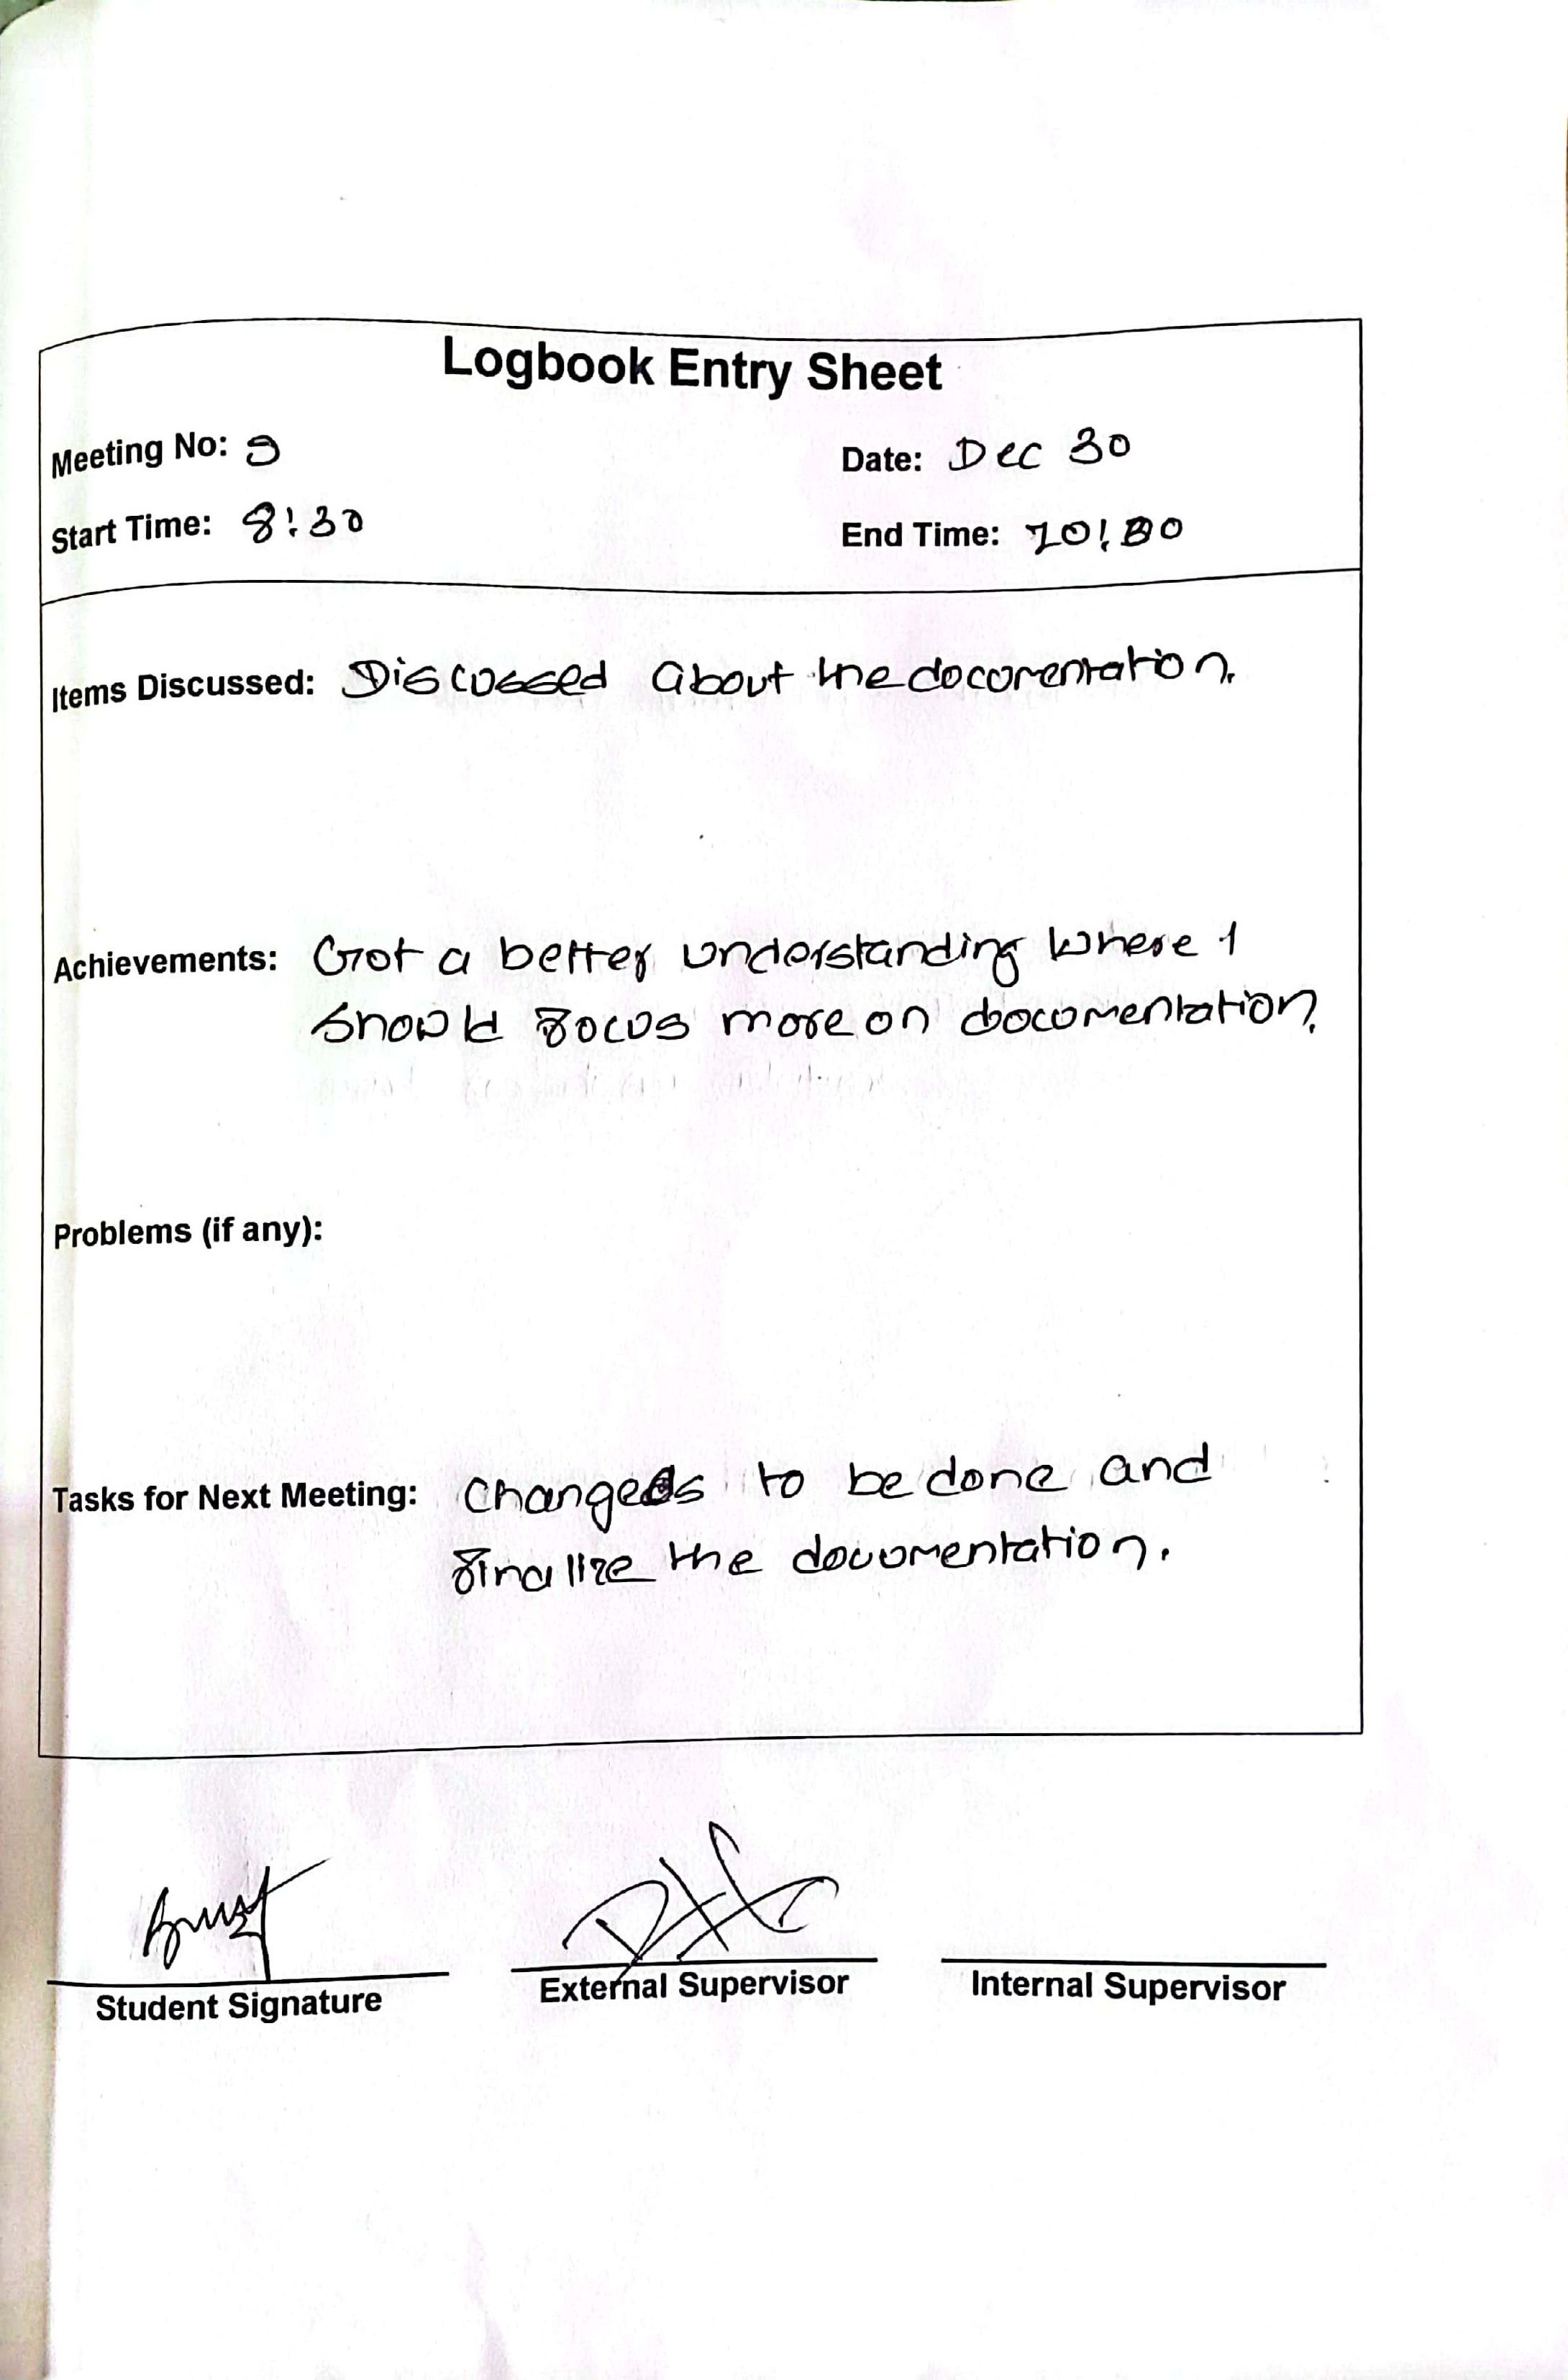 Logbook Entry Sheet
Meeting No: 9
Date: Dec 30
Start Time: 8:30
End Time: 10:00
Items Discussed: Discussed about the documentation.
Achievements: Got a better understanding where I
should focus more on documentation.
Problems (if any):
Tasks for Next Meeting: Changes to be done and
finalize the documentation.
Student Signature
External Supervisor
Internal Supervisor